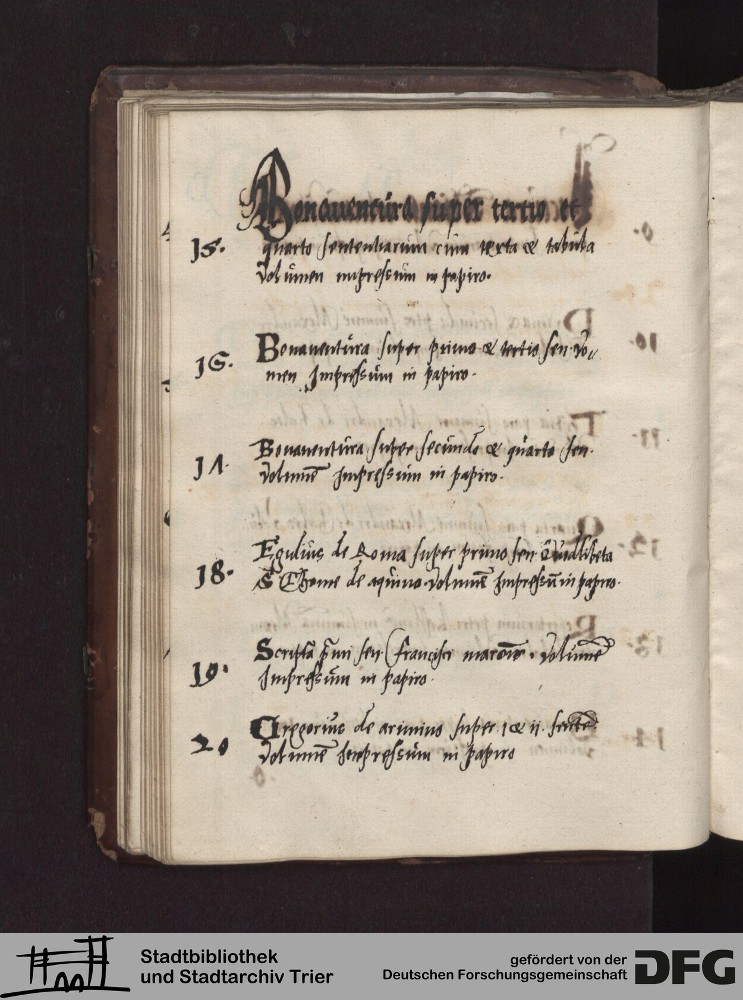 Bonaventura super tertio et
15. quarto sententiarum cum texta & tabula
volumen impressum in papiro.
16. Bonaventura super primo & tertio sen. vo„
men Impressum in papiro.
17. Bonaventura super secundo & quarto sen.
volumē impressum in papiro.
18. Egidius de Roma super primo sen Quodlibeta
S Thome de aquino volumē Impressū in papiro.
19. Scripta primi sen Francisci maronis. volumē
Impressum in papiro.
20 Gregorius de arimino super 1 & ii. senten
volumē Impressum in papiro
Stadtbibliothek
und Stadtarchiv Trier
gefördert von der
Deutschen Forschungsgemeinschaft
DFG